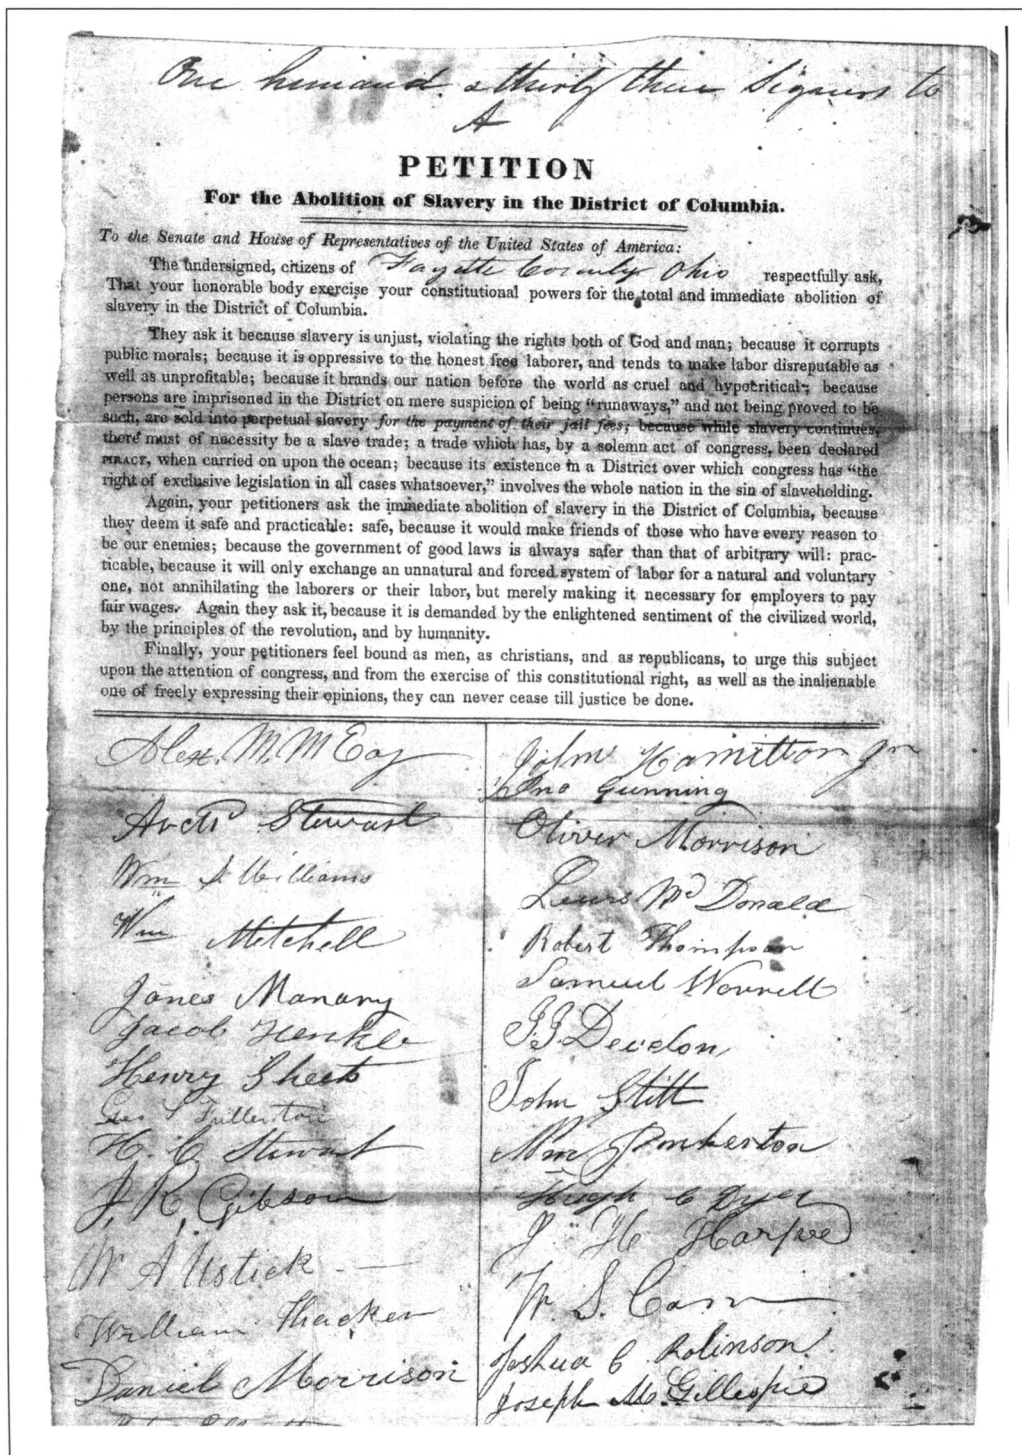 One hundred & thirty three Signers to
A
PETITION
For the Abolition of Slavery in the District of Columbia.
To the Senate and House of Representatives of the United States of America:
The undersigned, citizens of Fayette County Ohio respectfully ask,
That your honorable body exercise your constitutional powers for the total and immediate abolition of
slavery in the District of Columbia.
They ask it because slavery is unjust, violating the rights both of God and man; because it corrupts
public morals; because it is oppressive to the honest free laborer, and tends to make labor disreputable as
well as unprofitable; because it brands our nation before the world as cruel and hypocritical; because
persons are imprisoned in the District on mere suspicion of being "runaways," and not being proved to be
such, are sold into perpetual slavery for the payment of their jail fees; because while slavery continues,
there must of necessity be a slave trade; a trade which has, by a solemn act of congress, been declared
PIRACY, when carried on upon the ocean; because its existence in a District over which congress has "the
right of exclusive legislation in all cases whatsoever," involves the whole nation in the sin of slaveholding.
Again, your petitioners ask the immediate abolition of slavery in the District of Columbia, because
they deem it safe and practicable: safe, because it would make friends of those who have every reason to
be our enemies; because the government of good laws is always safer than that of arbitrary will: prac-
ticable, because it will only exchange an unnatural and forced system of labor for a natural and voluntary
one, not annihilating the laborers or their labor, but merely making it necessary for employers to pay
fair wages. Again they ask it, because it is demanded by the enlightened sentiment of the civilized world,
by the principles of the revolution, and by humanity.
Finally, your petitioners feel bound as men, as christians, and as republicans, to urge this subject
upon the attention of congress, and from the exercise of this constitutional right, as well as the inalienable
one of freely expressing their opinions, they can never cease till justice be done.
Alex. M. McCoy
Stewart
Wm S Williams
Wm Mitchell
James Manary
Jacob Henkle
Henry Sheets
Geo S Fullerton
H. C. Stewart
J. R. Gibson
W A Ustick
William Thacker
Daniel Morrison
John Hamilton Jn
Jno Gunning
Oliver Morrison
Lewis McDonald
Robert Thompson
Samuel Worrell
John Stitt
Wm Pinkerton
Hugh C Dyer
J H Harper
W. S.
Joshua C Robinson
Joseph M. Gillespie